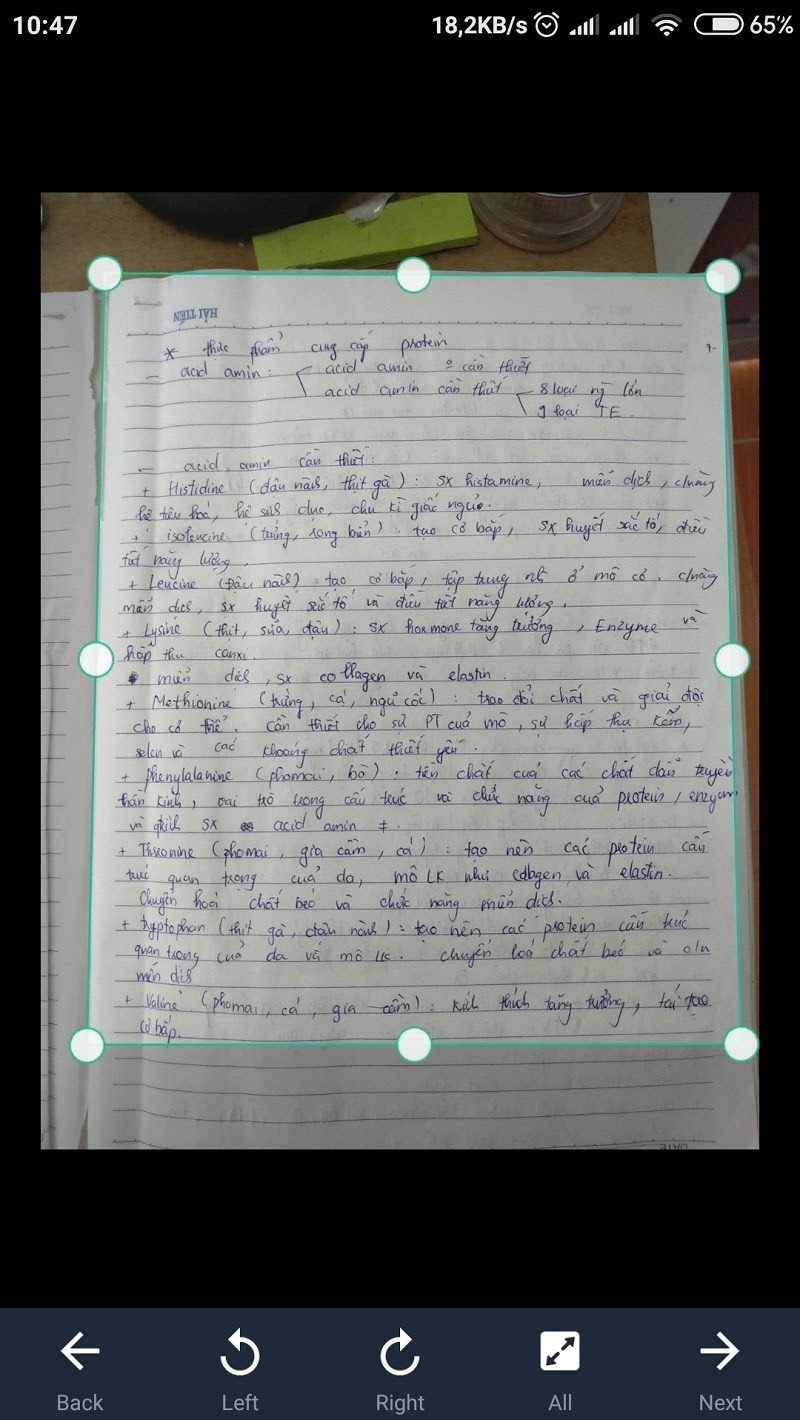 10:47 18,2KB/s 65%
HẢI TIẾN
* thực phẩm cung cấp protein
- acid amin: acid amin o cần thiết
acid amin cần thiết 8 loại ng lớn
9 loại TE.
- acid amin cần thiết:
+ Histidine (đậu nành, thịt gà): sx histamine, miễn dịch,
hệ tiêu hoá, hệ sinh dục, chu kì giấc ngủ.
+ isoleucine (trứng, rong biển): tạo cơ bắp, sx huyết sắc tố, điều
tiết năng lượng.
+ Leucine (Đậu nành): tạo cơ bắp, tập trung ở mô cơ.
miễn dịch, sx huyết sắc tố và điều tiết năng lượng.
+ Lysine (thịt, sữa, đậu): sx hormone tăng trưởng, Enzyme và
hấp thu canxi.
miễn dịch, sx collagen và elastin.
+ Methionine (trứng, cá, ngũ cốc): trao đổi chất và giải độc
cho cơ thể. cần thiết cho sự PT của mô, sự hấp thụ kẽm,
selen và các khoáng chất thiết yếu.
+ phenylalanine (phomai, bò): tiền chất của các chất dẫn truyền
thần kinh, vai trò trong cấu trúc và chức năng của protein, enzym
và sx acid amin ≠.
+ Threonine (phomai, gia cầm, cá): tạo nên các protein cấu
trúc quan trọng của da, mô LK như collagen và elastin.
Chuyển hoá chất béo và chức năng miễn dịch.
+ tryptophan (thịt gà, đậu nành): tạo nên các protein cấu trúc
quan trọng của da và mô LK. chuyển hoá chất béo và c/n
miễn dịch
+ Valine (phomai, cá, gia cầm): kích thích tăng trưởng, tái tạo
cơ bắp.
Back Left Right All Next